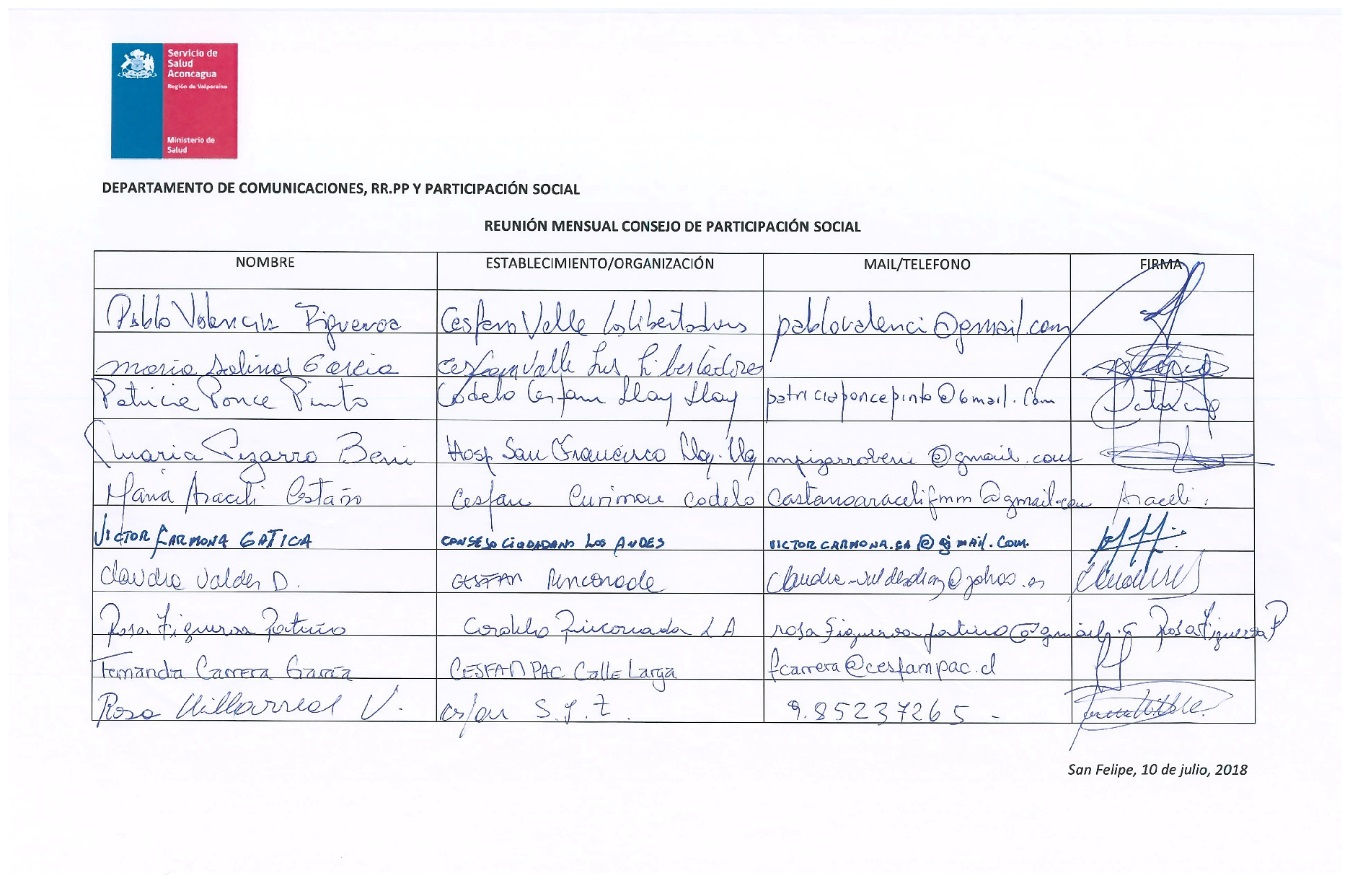 Servicio de
Salud
Aconcagua
Región de Valparaíso
Ministerio de
Salud
DEPARTAMENTO DE COMUNICACIONES, RR.PP Y PARTICIPACIÓN SOCIAL
REUNIÓN MENSUAL CONSEJO DE PARTICIPACIÓN SOCIAL
NOMBRE ESTABLECIMIENTO/ORGANIZACIÓN MAIL/TELEFONO FIRMA
Pablo Valencia Figueroa Cesfam Valle Los Libertadores pablovalenci@gmail.com
Maria Salinas Garcia Cesfam Valle Los Libertadores
Patricia Ponce Pinto Codelo Cesfam Llay Llay patriciaponcepinto@gmail.com
Maria Pizarro Beni Hosp San Francisco Llay-Llay mpizarrobeni@gmail.com
Maria Araceli Castaño Cesfam Curimon Codelo castanoaracelifmm@gmail.com Araceli
VICTOR CARMONA GATICA CONSEJO CIUDADANO LOS ANDES VICTOR.CARMONA.GA@gmail.com.
Claudia Valdes D. CESFAM Rinconada claudia-valdesdiaz@yahoo.es
Rosa Figueroa Patiño Rinconada L A Rosa Figueroa P
Fernanda Carrera García CESFAM PAC Calle Larga fcarrera@cesfampac.cl
Rosa Villarreal V. 9.85237265 -
San Felipe, 10 de julio, 2018